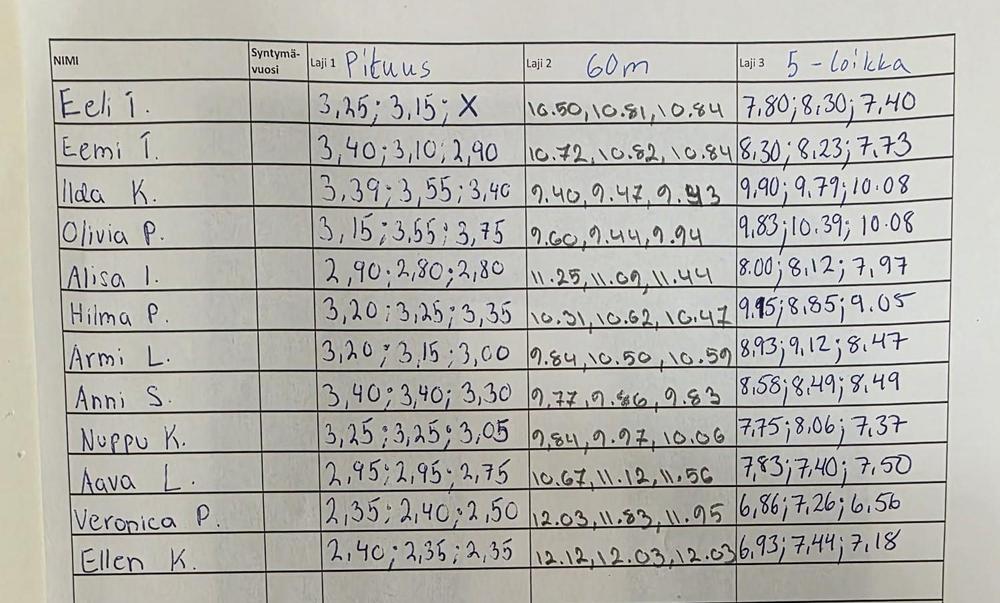 NIMI Syntymä-vuosi Laji 1 Pituus Laji 2 60m Laji 3 5-loikka
Eeli T. 3,25; 3,15; X 10.50, 10.81, 10.84 7,80; 8,30; 7,40
Eemi T. 3,40; 3,10; 2,90 10.72, 10.82, 10.84 8,30; 8,23; 7,73
Ilda K. 3,39; 3,55; 3,40 9.40, 9.47, 9.43 9,90; 9,79; 10.08
Olivia P. 3,15; 3,55; 3,75 9.60, 9.44, 9.94 9,83; 10.39; 10.08
Alisa I. 2,90; 2,80; 2,80 11.25, 11.09, 11.44 8.00; 8,12; 7,97
Hilma P. 3,20; 3,25; 3,35 10.31, 10.62, 10.47 9.15; 8,85; 9.05
Armi L. 3,20; 3,15; 3,00 9.84, 10.50, 10.59 8,93; 9,12; 8,47
Anni S. 3,40; 3,40; 3,30 9,77, 9.86, 9.83 8,58; 8,49; 8,49
Nuppu K. 3,25; 3,25; 3,05 9,84, 9.97, 10.06 7,75; 8,06; 7,37
Aava L. 2,95; 2,95; 2,75 10.67, 11.12, 11.56 7,83; 7,40; 7,50
Veronica P. 2,35; 2,40; 2,50 12.03, 11.83, 11.95 6,86; 7,26; 6,56
Ellen K. 2,40; 2,35; 2,35 12.12, 12.03, 12.03 6,93; 7,44; 7,18